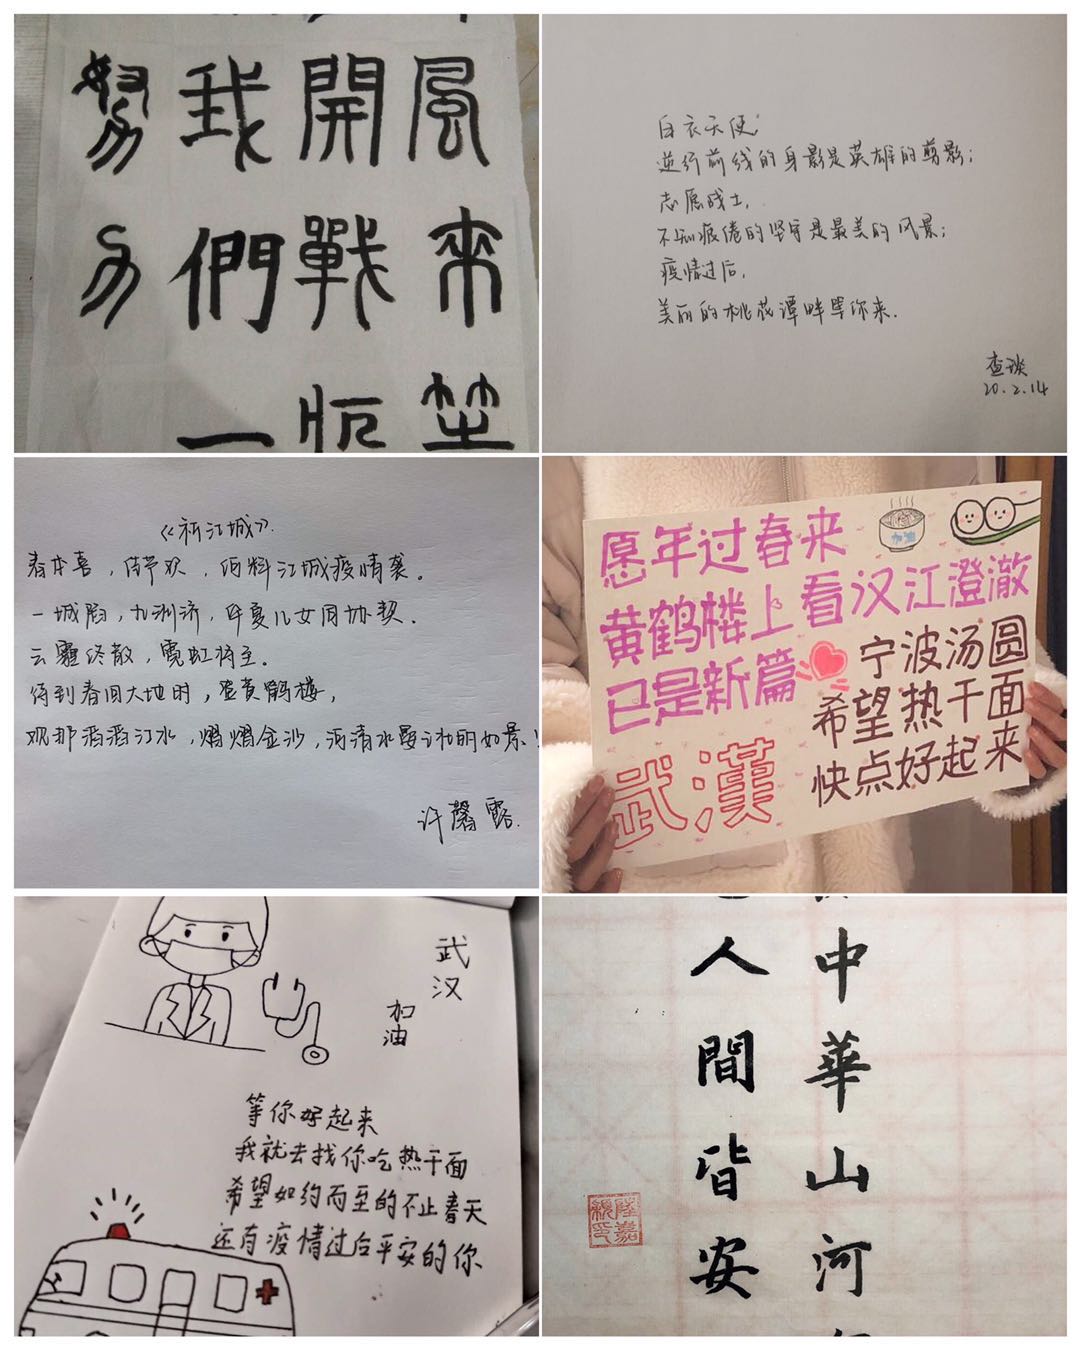 風來堃
開戰忼
我們一
努力
白衣天使,
逆行前线的身影是英雄的剪影;
志愿战士,
不知疲倦的坚守是最美的风景;
疫情过后,
美丽的桃花潭畔等你来.
查琰
20.2.14
《祈江城》
春本喜,佳节欢,何料江城疫情袭。
一城临,九洲济,华夏儿女同协契.
云霾终散,霓虹将至.
待到春回大地时,登黄鹤楼,
观那滔滔江水,熠熠金沙,河清水晏 的如景!
许馨露.
愿年过春来
黄鹤楼上看汉江澄澈
已是新篇
宁波汤圆
希望热干面
快点好起来
武漢
加油
武汉
加油
等你好起来
我就去找你吃热干面
希望如约而至的不止春天
还有疫情过后平安的你
中華山河
人間皆安
陸嘉
穎印